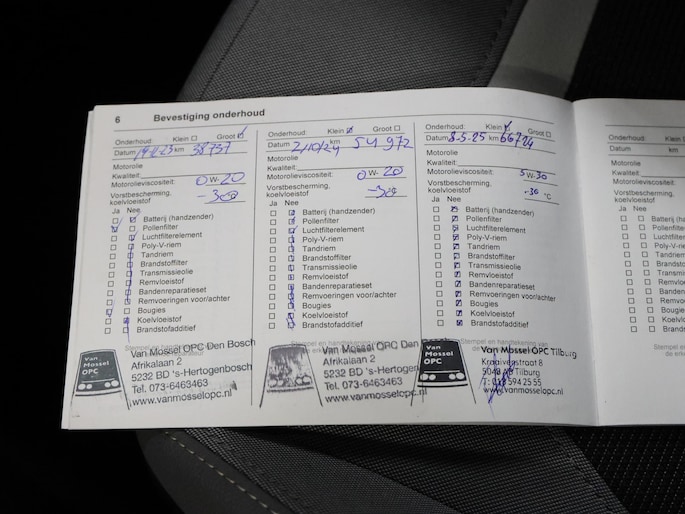 6 Bevestiging onderhoud
Onderhoud: Klein Groot
Datum 38737 km
Motorolie
Kwaliteit:
Motorolieviscositeit: 0 W-20
Vorstbescherming,
koelvloeistof -30
Ja Nee
Batterij (handzender)
Pollenfilter
Luchtfilterelement
Poly-V-riem
Tandriem
Brandstoffilter
Transmissieolie
Remvloeistof
Bandenreparatieset
Remvoeringen voor/achter
Bougies
Koelvloeistof
Brandstofadditief
Van Mossel OPC
Van Mossel OPC Den Bosch
Afrikalaan 2
5232 BD 's-Hertogenbosch
Tel. 073-6463463
www.vanmosselopc.nl
Onderhoud: Klein Groot
Datum 2/10/24 km 54972
Motorolie
Kwaliteit:
Motorolieviscositeit: 0 W-20
Vorstbescherming,
koelvloeistof -30
Ja Nee
Batterij (handzender)
Pollenfilter
Luchtfilterelement
Poly-V-riem
Tandriem
Brandstoffilter
Transmissieolie
Remvloeistof
Bandenreparatieset
Remvoeringen voor/achter
Bougies
Koelvloeistof
Brandstofadditief
Van Mossel OPC Den
Afrikalaan 2
5232 BD 's-Hertogen
Tel. 073-6463463
www.vanmosselopc.nl
Onderhoud: Klein Groot
Datum 8-5-25 km 66724
Motorolie
Kwaliteit:
Motorolieviscositeit: 5 W-30
Vorstbescherming,
koelvloeistof -30 °C
Ja Nee
Batterij (handzender)
Pollenfilter
Luchtfilterelement
Poly-V-riem
Tandriem
Brandstoffilter
Transmissieolie
Remvloeistof
Bandenreparatieset
Remvoeringen voor/achter
Bougies
Koelvloeistof
Brandstofadditief
Stempel en handtekening van
Van Mossel OPC
Van Mossel OPC Tilburg
Kraaivenstraat 8
5048 AB Tilburg
T: 013 594 25 55
www.vanmosselopc.nl
Onderhoud:
Datum
Motorolie
Kwaliteit:
Motorolieviscosi
Vorstbescherming
koelvloeistof
Ja Nee
Batterij (h
Pollenfilte
Luchtfilte
Poly-V-ri
Tandriem
Brandstof
Transmis
Remvloei
Bandenre
Remvoeri
Bougies
Koelvloei
Brandstof
Stempel e
de erk